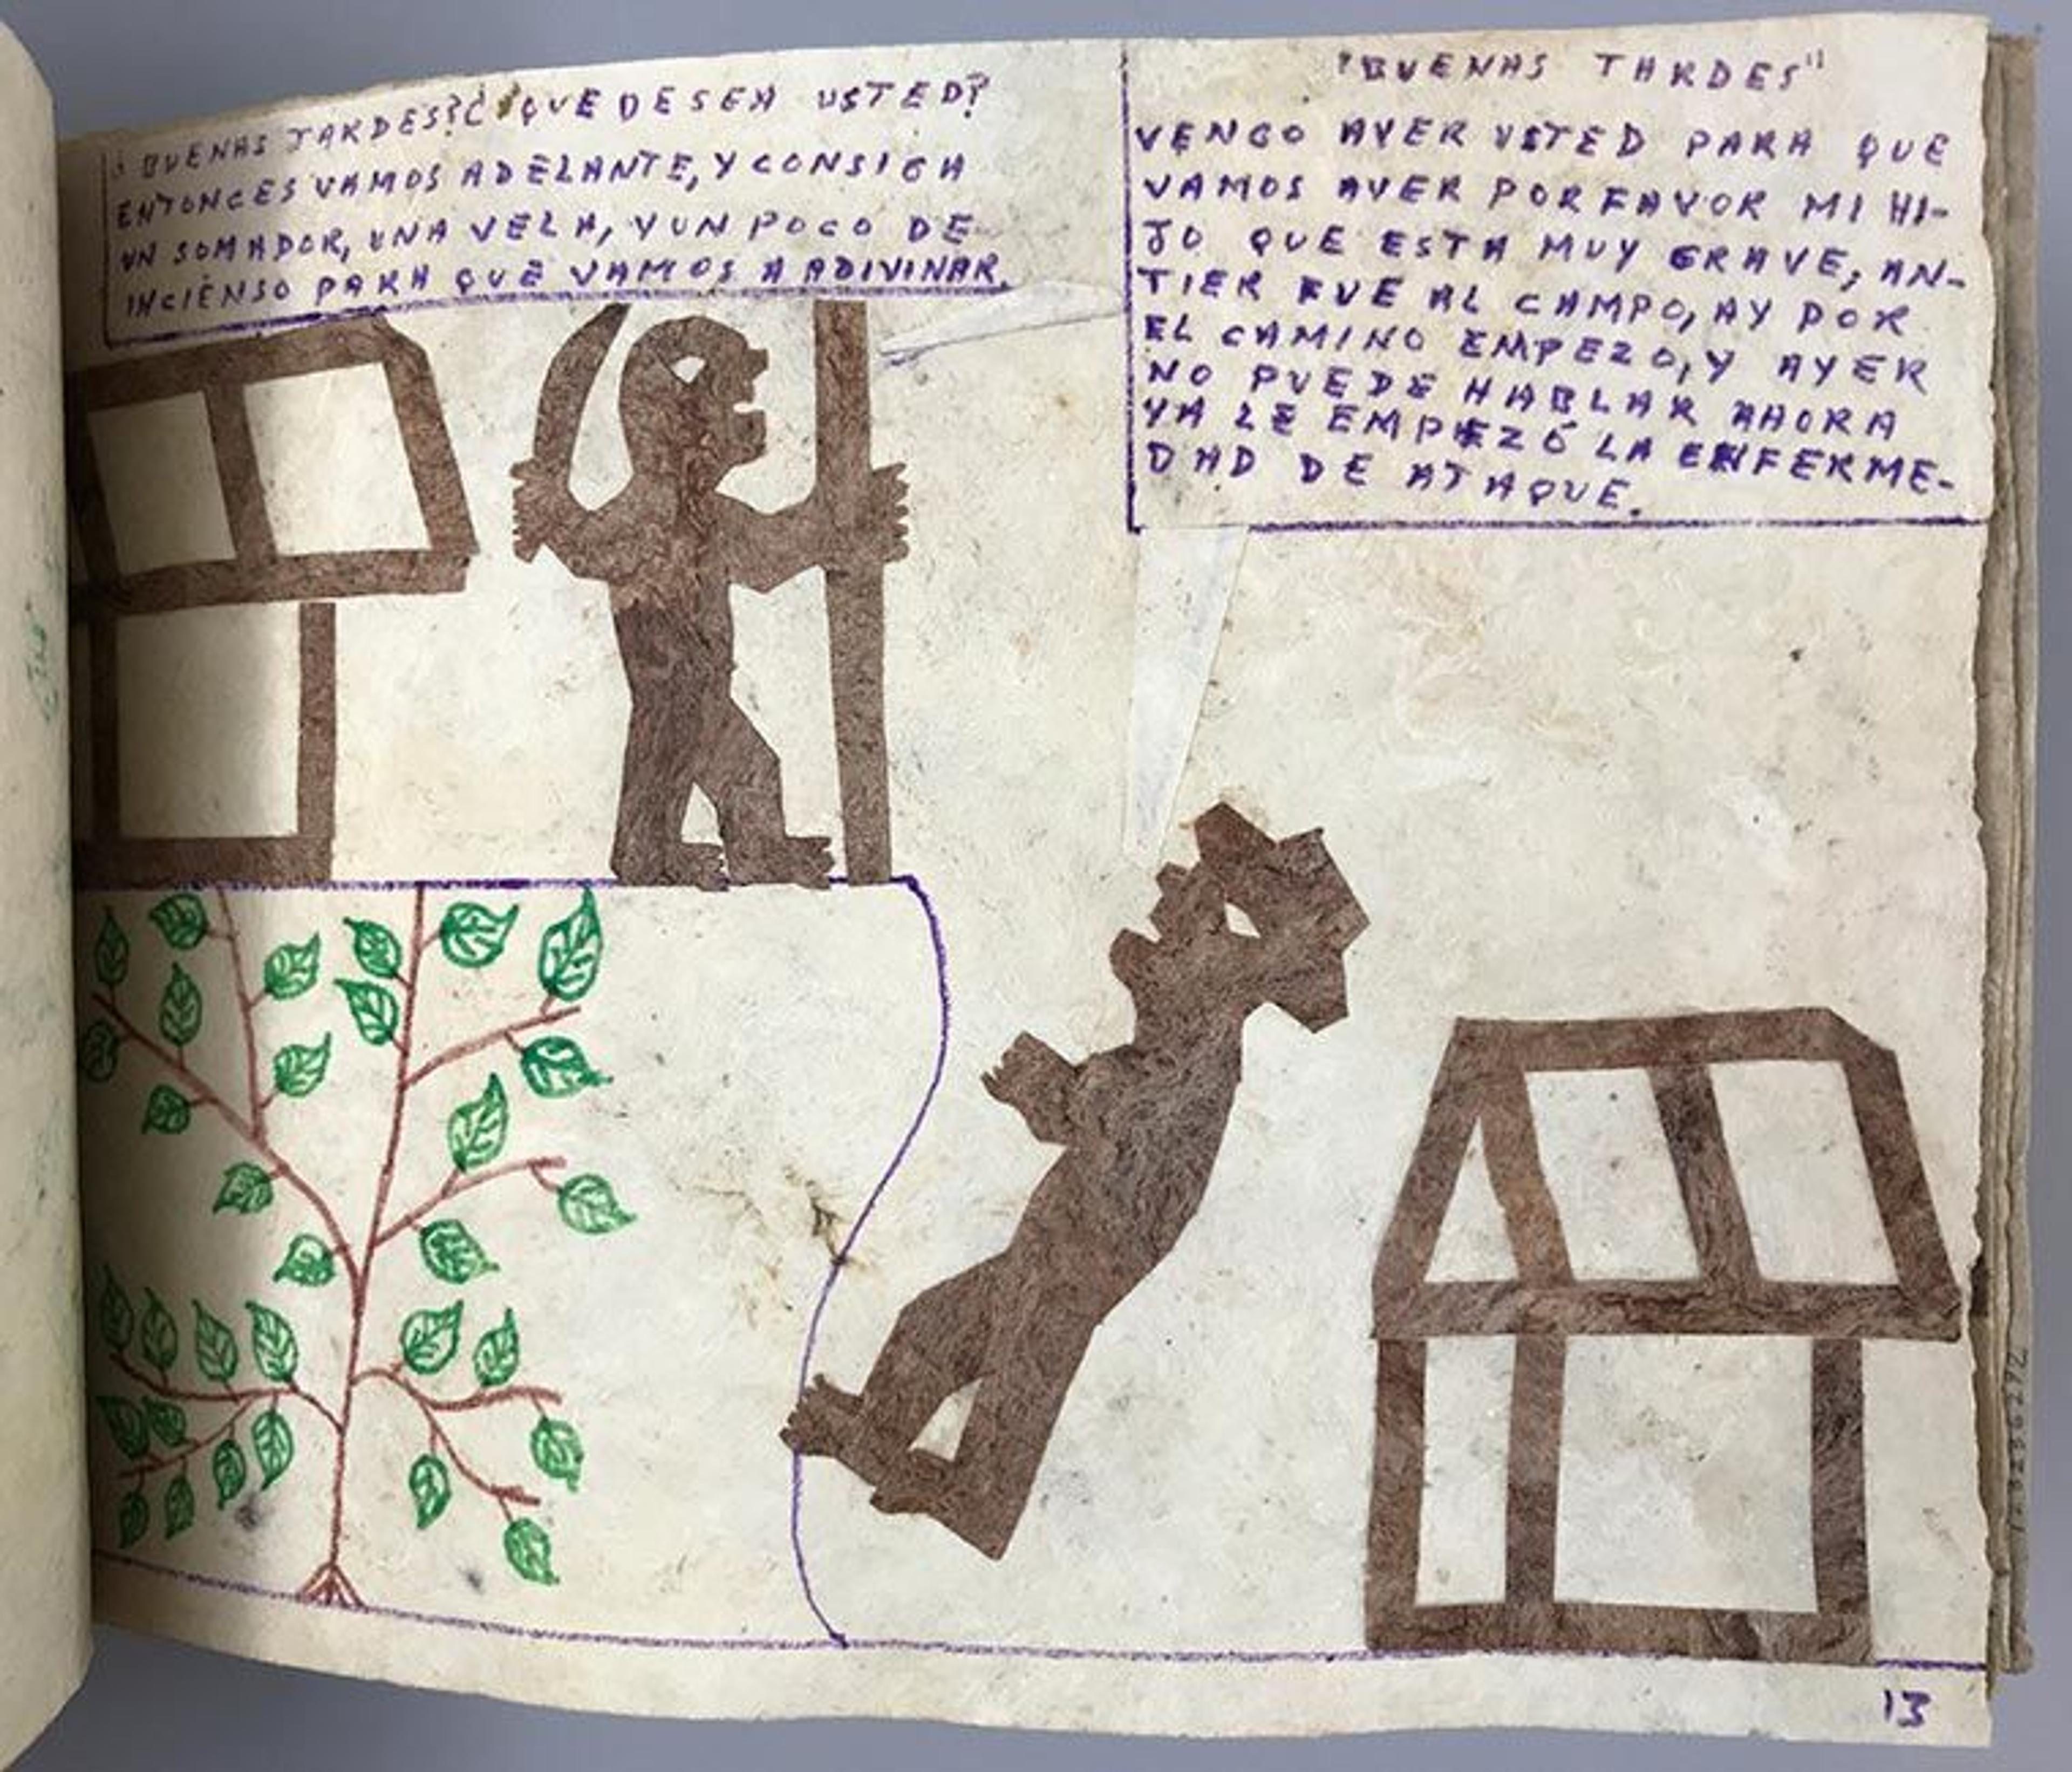 ¿BUENAS TARDES?¿QUE DESEA USTED?
ENTONCES VAMOS ADELANTE, Y CONSIGA
UN SOMADOR, UNA VELA, Y UN POCO DE
INCIENSO PARA QUE VAMOS A ADIVINAR.
"BUENAS TARDES"
VENGO AVER USTED PARA QUE
VAMOS AVER POR FAVOR MI HI-
JO QUE ESTA MUY GRAVE; AN-
TIER FUE AL CAMPO, AY POR
EL CAMINO EMPEZO, Y AYER
NO PUEDE HABLAR AHORA
YA LE EMPEZÓ LA ENFERME-
DAD DE ATAQUE.
13